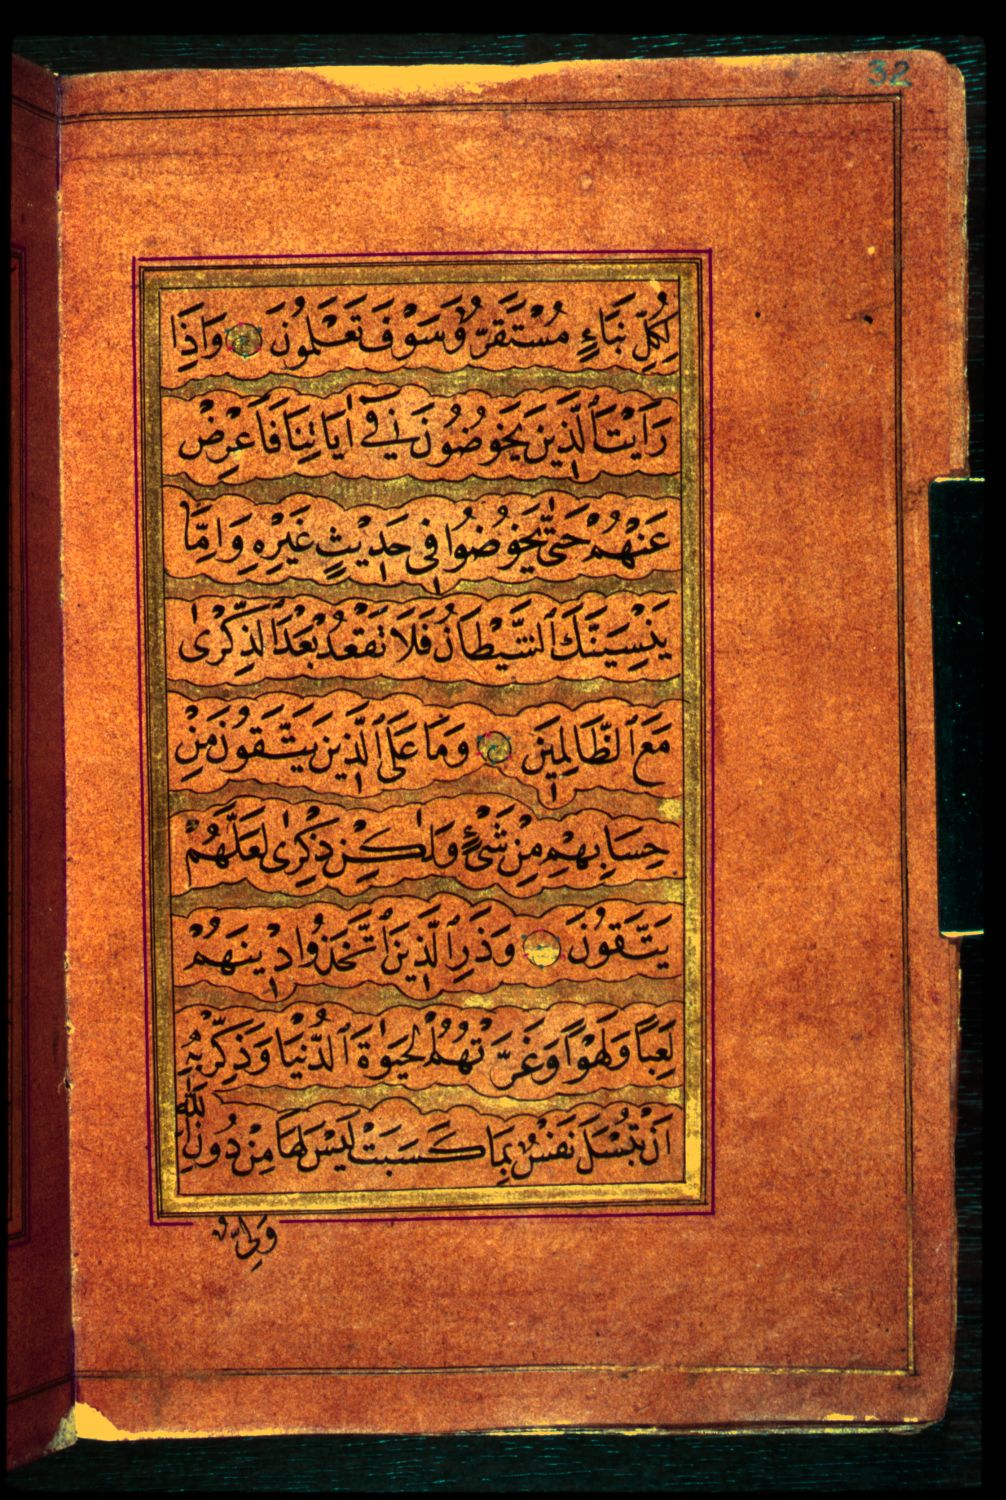 32
لِكُلِّ نَبَاءٍ مُسْتَقَرٌّ وَسَوْفَ تَعْلَمُونَ وَاِذَا
رَاَيْتَ ٱلَّذِينَ يَخُوضُونَ فِي اٰيَاتِنَا فَاَعْرِضْ
عَنْهُمْ حَتّٰى يَخُوضُوا فِي حَدِيْثٍ غَيْرِهِ وَاِمَّا
يُنْسِيَنَّكَ ٱلشَّيْطَانُ فَلَا تَقْعُدْ بَعْدَ ٱلذِّكْرٰى
مَعَ ٱلظَّالِمِينَ وَمَا عَلَى ٱلَّذِينَ يَتَّقُونَ مِنْ
حِسَابِهِمْ مِنْ شَيْءٍ وَلٰكِنْ ذِكْرٰى لَعَلَّهُمْ
يَتَّقُونَ وَذَرِ ٱلَّذِينَ ٱتَّخَذُوا دِينَهُمْ
لَعِبًا وَلَهْوًا وَغَرَّتْهُمُ ٱلْحَيٰوةُ ٱلدُّنْيَا وَذَكِّرْ بِهِ
اَنْ تُبْسَلَ نَفْسٌ بِمَا كَسَبَتْ لَيْسَ لَهَا مِنْ دُونِ ٱللّٰهِ
وَلِيٌّ